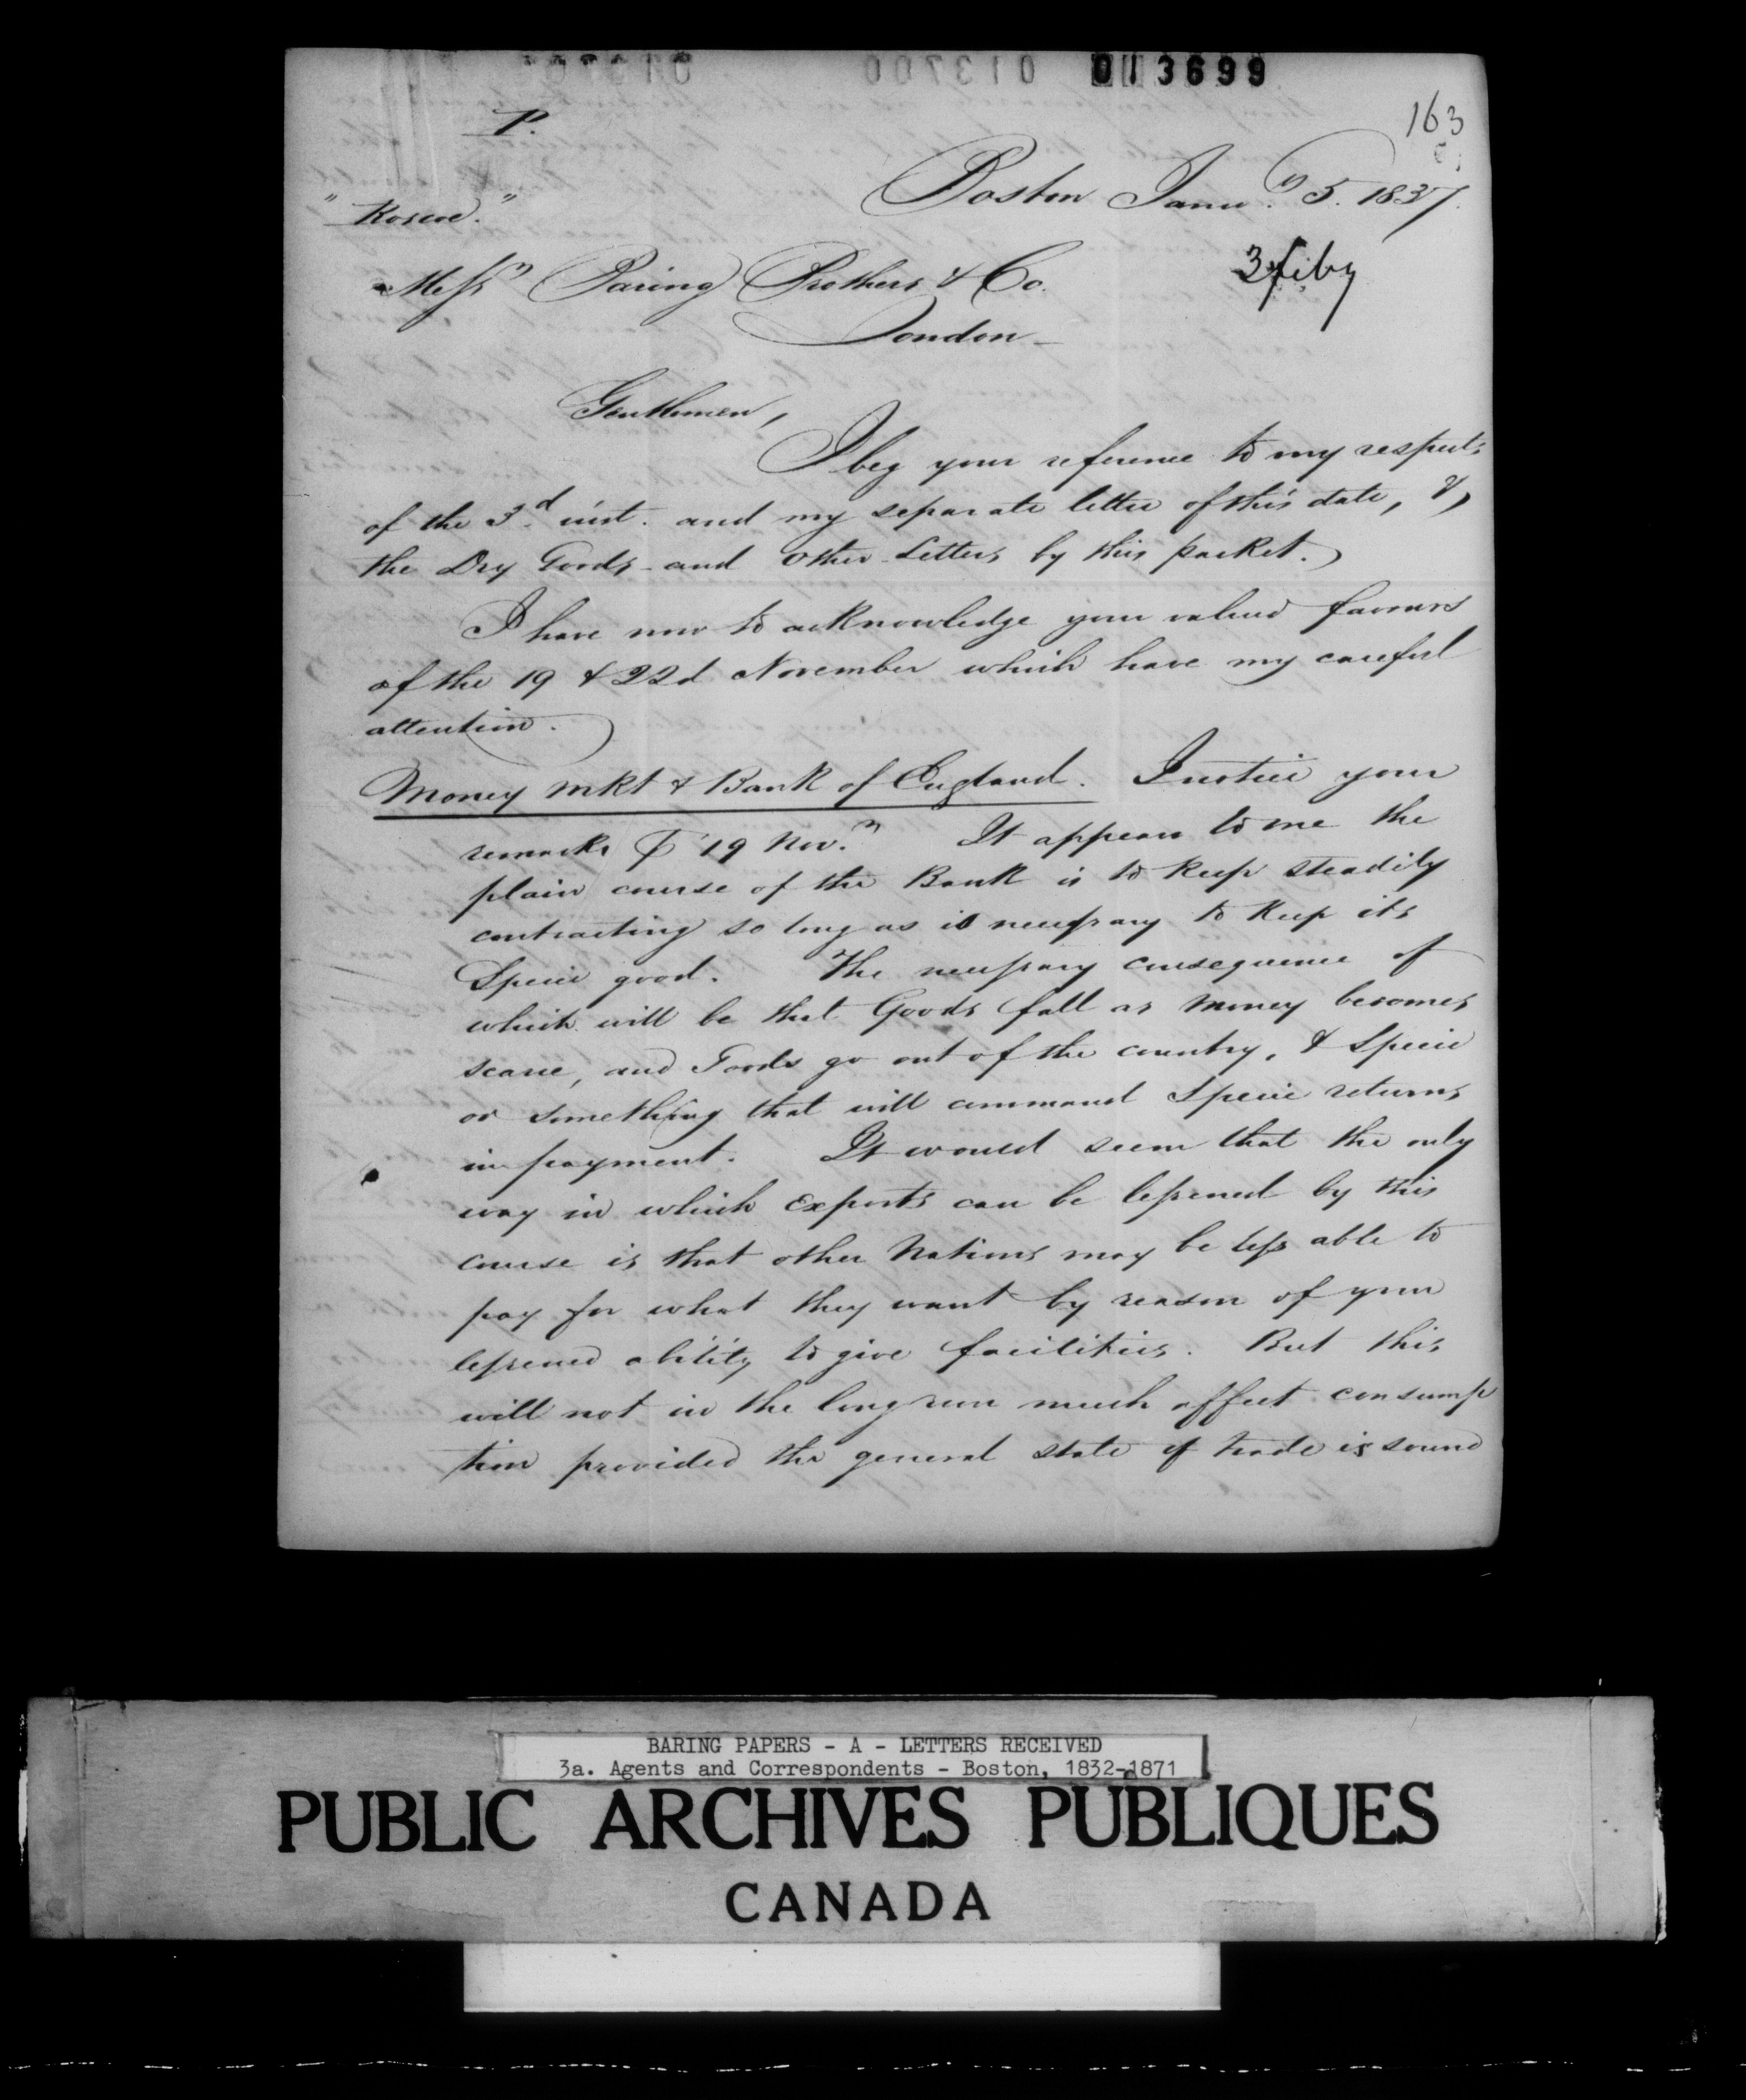 013699
163
P.
Boston Janu.y 5. 1837.
"Roscoe."
Messrs Baring Brothers & Co.
London
Gentlemen,
I beg your reference to my respects
of the 3.d inst. and my separate letter of this date, &
the Dry Goods and Other Letters by this packet.
I have now to acknowledge your valued favours
of the 19 & 22d November which have my careful
attention.
Money mkt & Bank of England. I notice your
remarks 19 Nov.r It appears to me the
plain course of the Bank is to keep steadily
contracting so long as is necessary to keep its
Specie good. The necessary consequence of
which will be that Goods fall as money becomes
scarce, and Goods go out of the country, & Specie
or something that will command Specie returns
in payment. It would seem that the only
way in which Exports can be lessened by this
course is that other Nations may be less able to
pay for what they want by reason of your
lessened ability to give facilities. But this
will not in the long run much affect consump
tion provided the general state of trade is sound
BARING PAPERS - A - LETTERS RECEIVED
3a. Agents and Correspondents - Boston, 1832-1871
PUBLIC ARCHIVES PUBLIQUES
CANADA